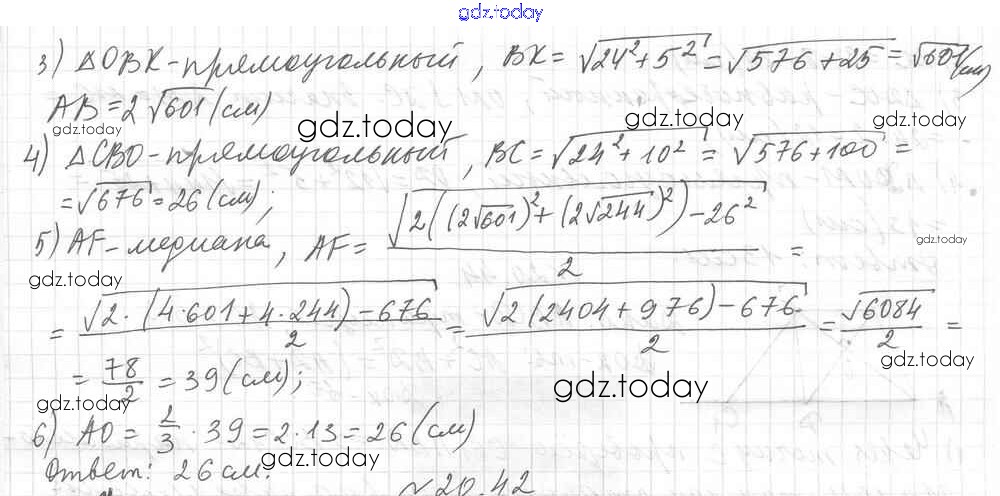 gdz.today
3) ΔOBK-прямоугольный, BK = √(24²+5²) = √(576+25) = √601 (см)
AB = 2√601 (см)
gdz.today
gdz.today
gdz.today
4) ΔCBO-прямоугольный, BC = √(24²+10²) = √(576+100) =
= √676 = 26 (см);
5) AF-медиана, AF = √(2((2√601)²+(2√244)²)-26²)/2 =
gdz.today
gdz.today
= √(2·(4·601+4·244)-676)/2 = √(2(2404+976)-676)/2 = √6084/2 =
gdz.today
= 78/2 = 39 (см);
gdz.today
gdz.today
6) AO = 2/3 · 39 = 2·13 = 26 (см)
Ответ: 26 см.
gdz.today
№20.42